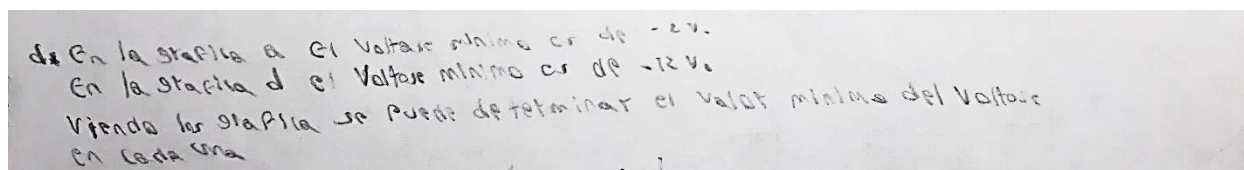 d. En la grafica a el Voltaje minimo es de -2 v.
En la grafica d el Voltaje minimo es de -12 v.
Viendo las grafica se puede determinar el valor minimo del Voltaje
en cada una